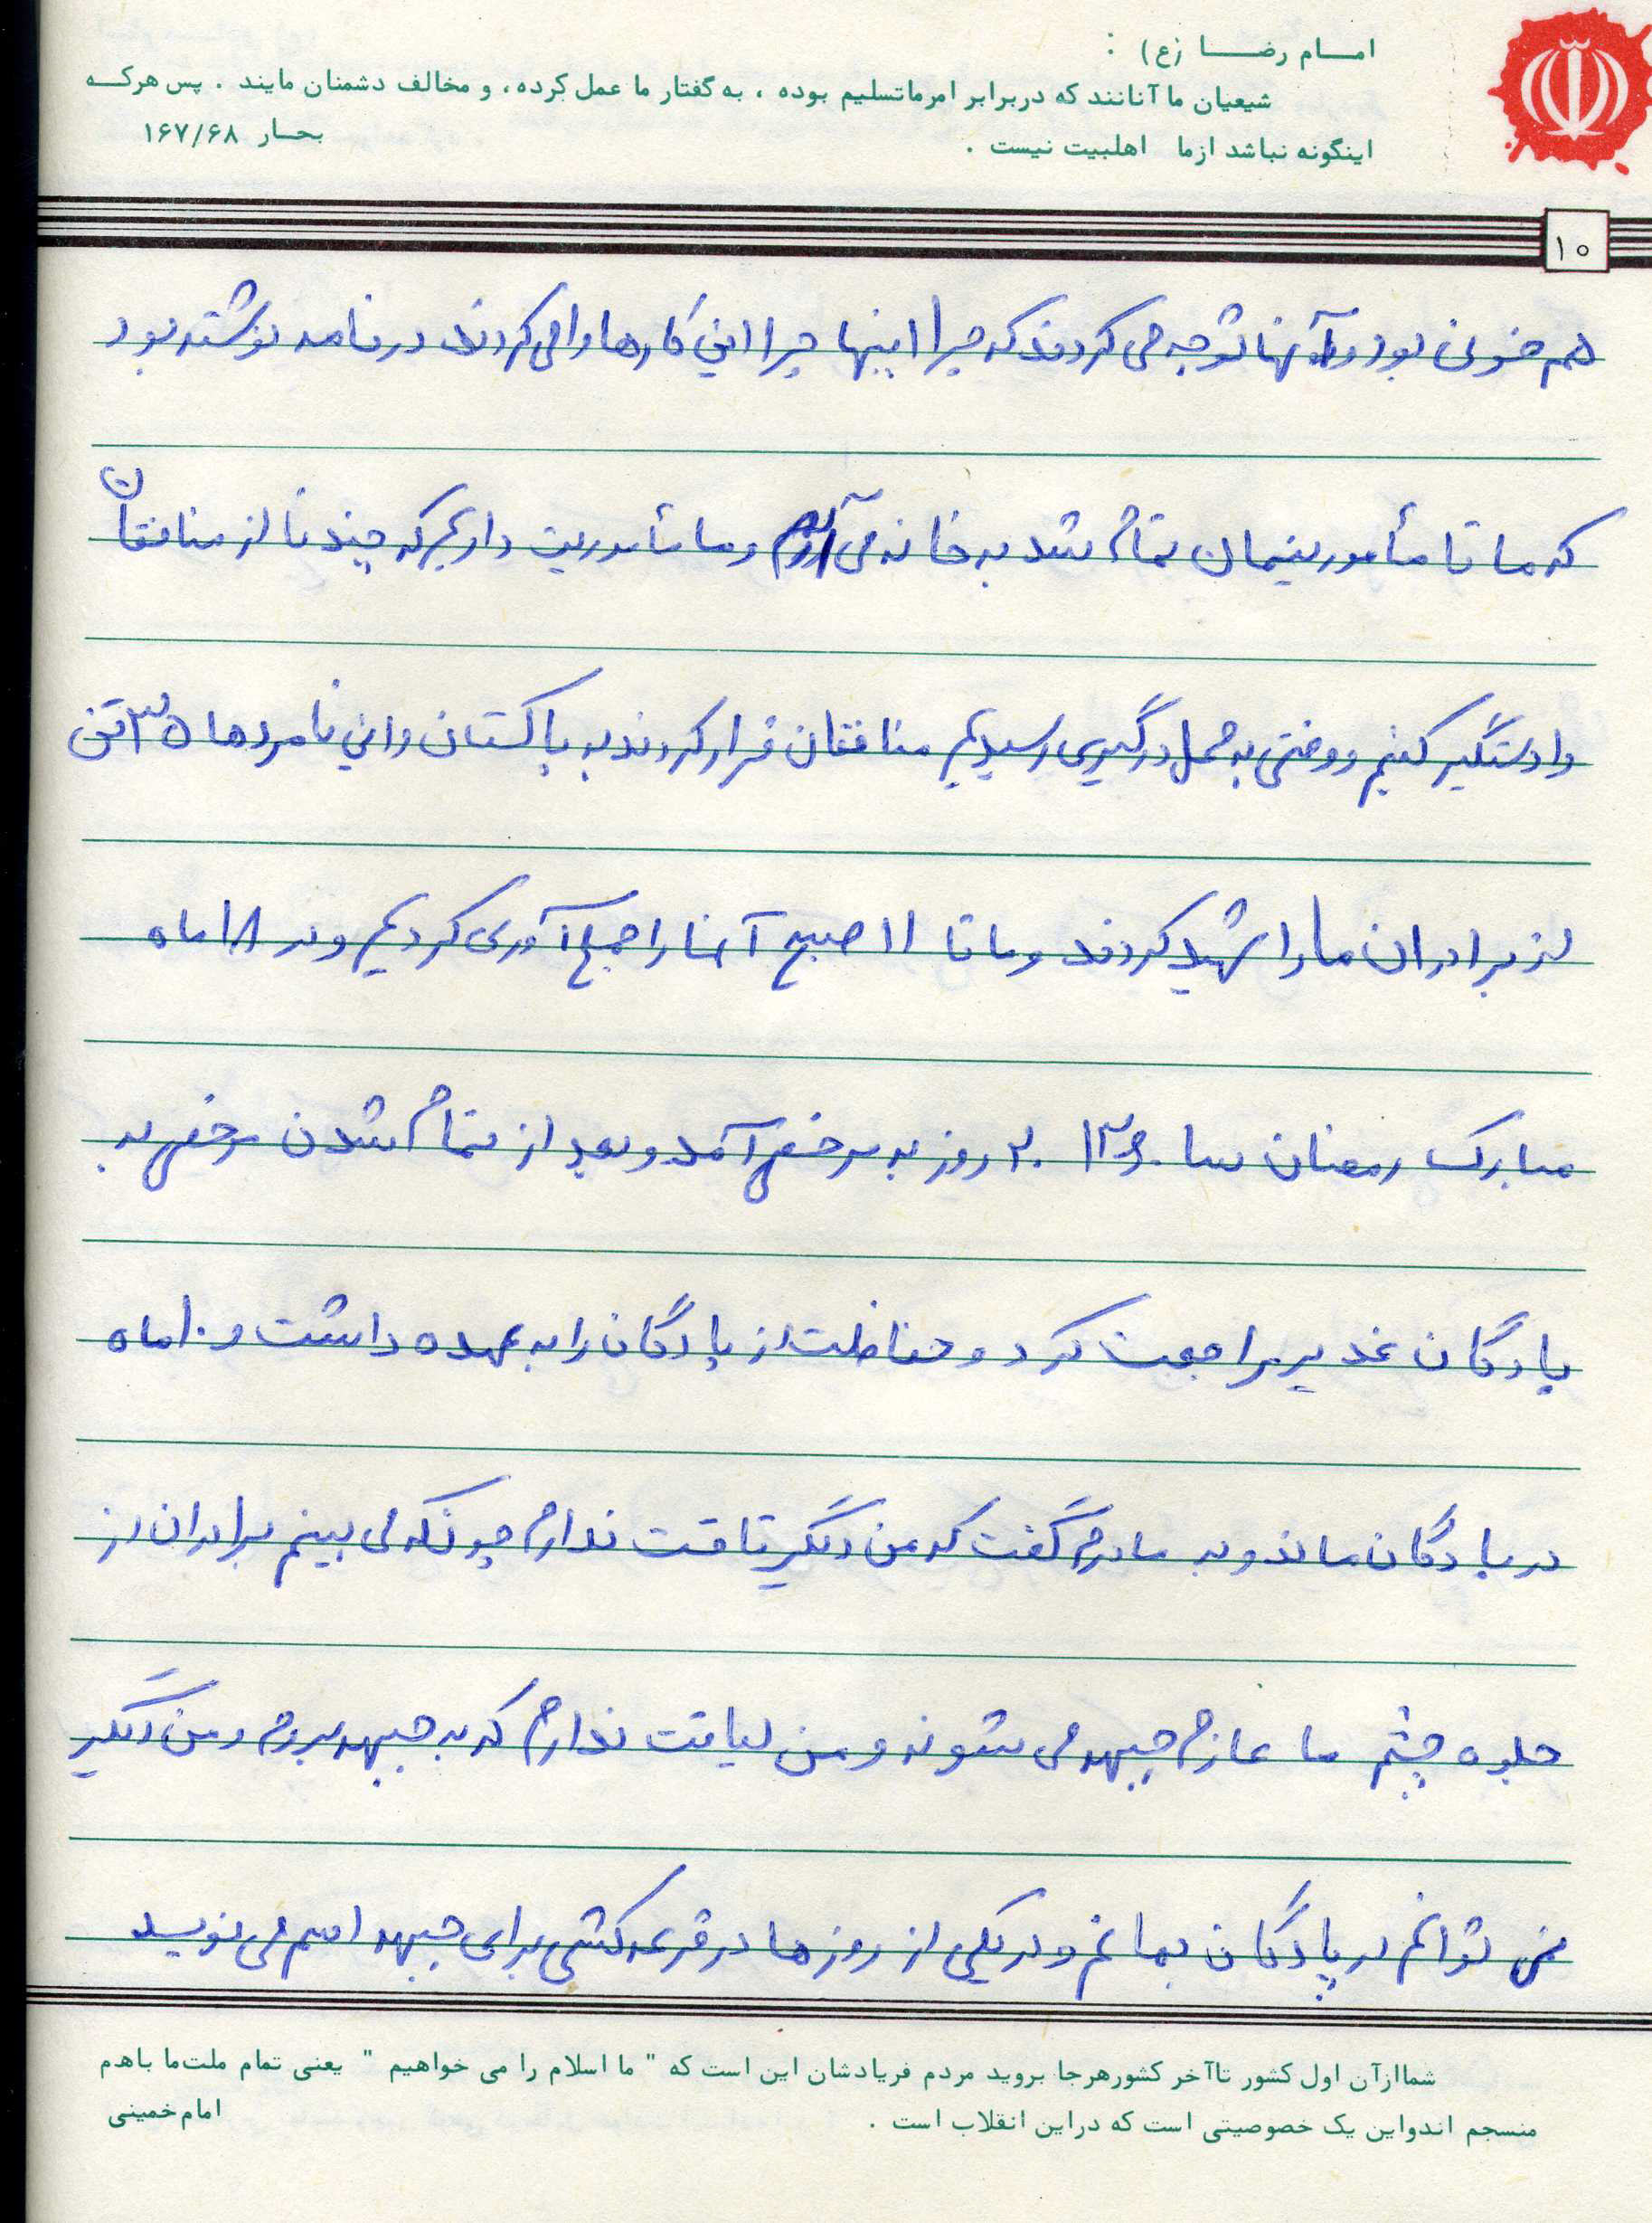 امام رضا (ع) :
شیعیان ما آنانند که دربرابر امرماتسلیم بوده ، به گفتار ما عمل کرده ، و مخالف دشمنان مایند . پس هرکه
اینگونه نباشد ازما اهلبیت نیست .
بحار ۱۶۷/۶۸
۱۰
هم خونی بود و آنها توجه می کردند که چرا اینها چرا این کارها را می کردند در نامه نوشته بود
که ما تا مأموریتمان تمام شد به خانه می و ما مأموریت داریم که چند تا از منافقان
را دستگیر کنیم و وقتی به محل درگیری رسیدیم منافقان فرار کردند به پاکستان و این نامردها ۳۵ تن
از برادران ما را شهید کردند و ما تا ۱۱ صبح آنها را جمع آوری کردیم و در ۱۸ ماه
مبارک رمضان سا ۱۳۶۰ ۲۰ روز به مرخصی آمد و بعد از تمام شدن مرخصی به
پادگان غدیر مراجعت کرد و حفاظت از پادگان را به عهده داشت و ۱۰ ماه
در پادگان ماند و به مادرم گفت که من دیگر تاقت ندارم چونکه می بینم برادران از
جلوه چشم ما عازم جبهه می شوند و من لیاقت ندارم که به جبهه بروم و من دیگر
نمی توانم در پادگان بمانم و در یکی از روزها در قرعه کشی برای جبهه اسم می نویسد
شماازآن اول کشور تاآخر کشورهرجا بروید مردم فریادشان این است که " ما اسلام را می خواهیم " یعنی تمام ملت‌ما باهم
منسجم اندواین یک خصوصیتی است که دراین انقلاب است .
امام خمینی